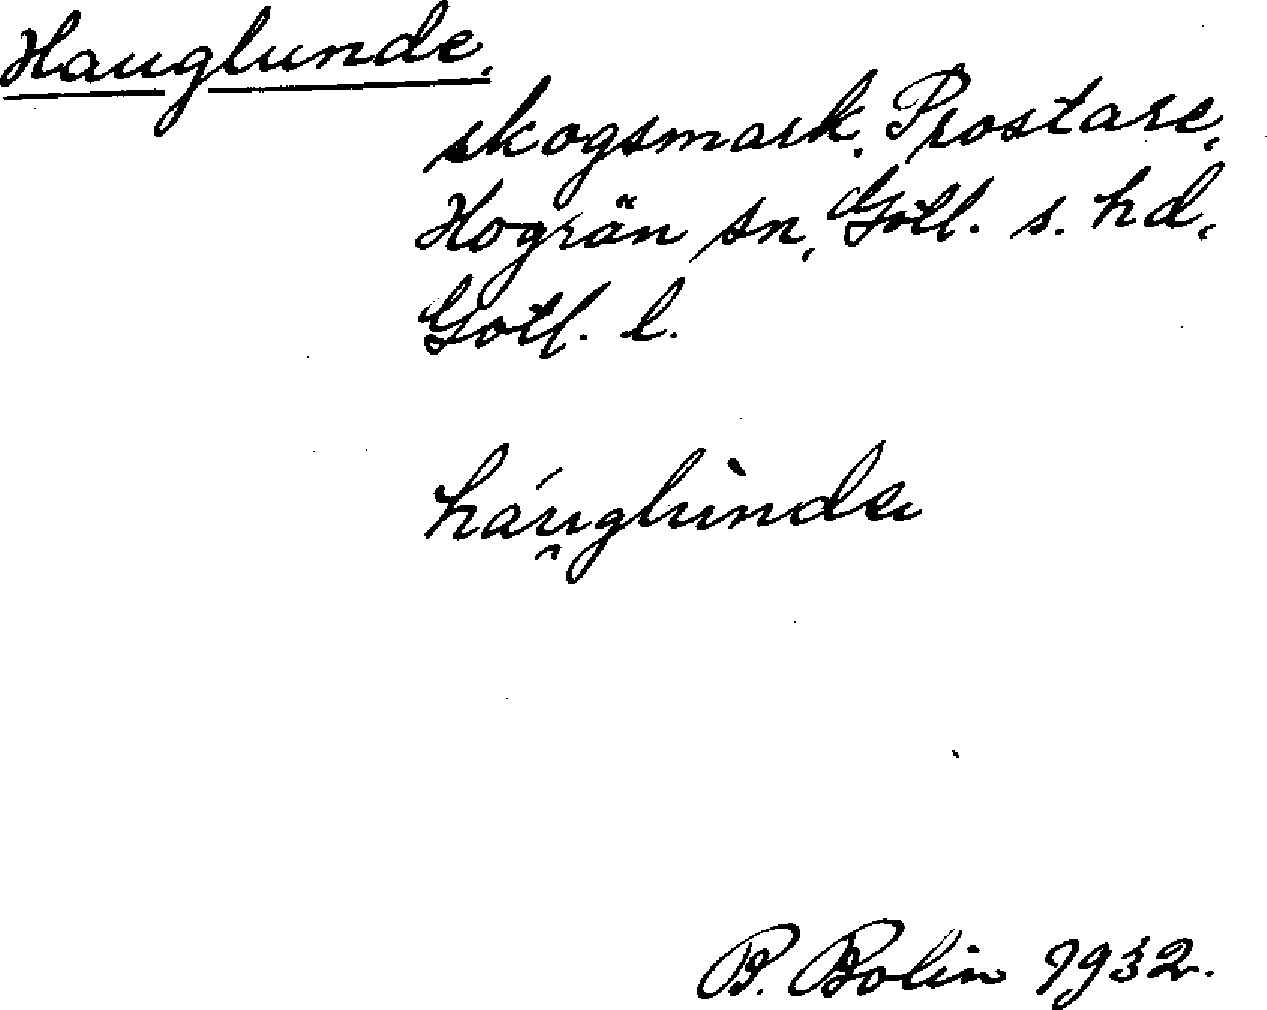 Hauglunde,
skogsmark, Prostare,
Hogrän sn, Gotl. s. hd,
Gotl. l.
háu̯glùnda
B. Bolin 1932.